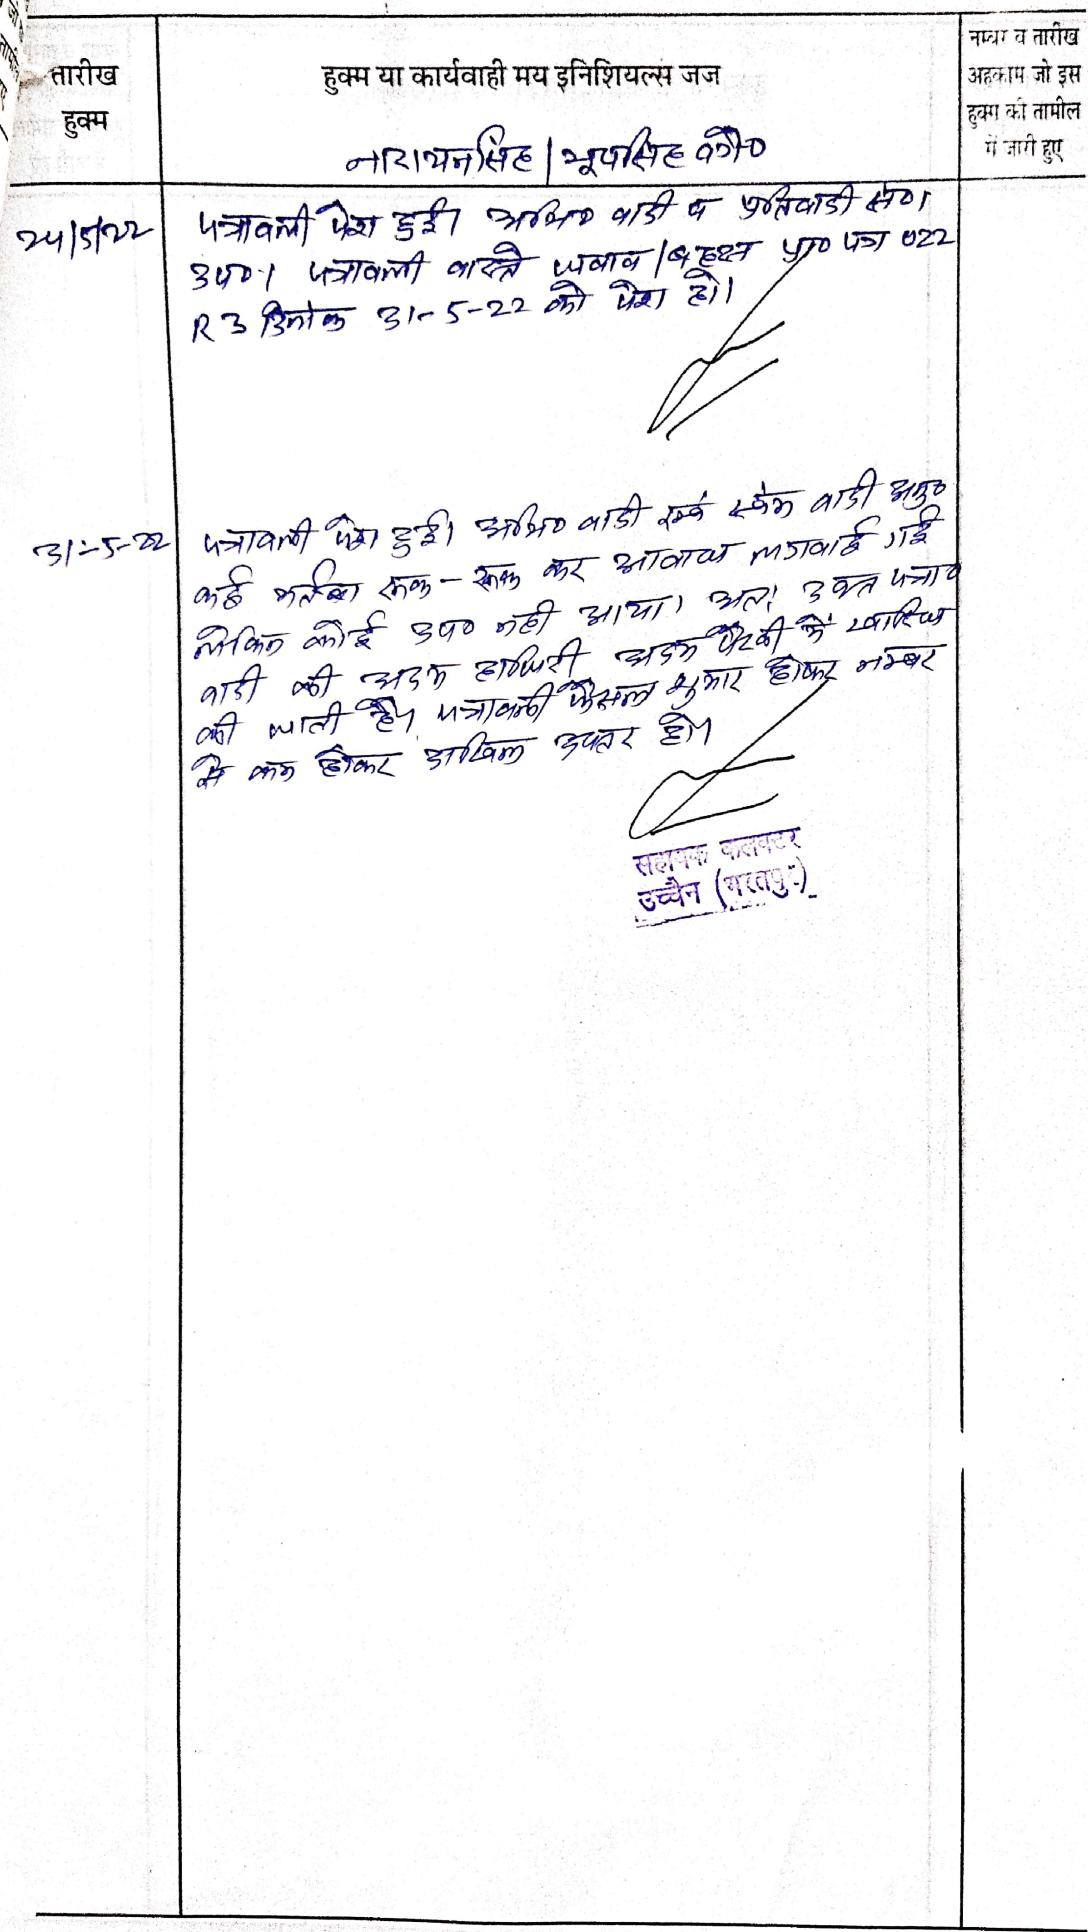 तारीख
हुक्म
हुक्म या कार्यवाही मय इनिशियल्स जज
नम्बर व तारीख
अहकाम जो इस
हुक्म की तामील
में जारी हुए
नारायनसिंह / भूपसिंह वगै०
24/5/22
पत्रावली पेश हुई। अभि० वादी व प्रतिवादी सं०1
उप०। पत्रावली वास्ते जवाब / बहस प्रा० पत्र 022
R 3 दिनांक 31-5-22 को पेश हो।
31-5-22
पत्रावली पेश हुई। अभि० वादी एवं स्वंम वादी अनु०
कई मर्तबा रूक-रूक कर आवाज लगवाई गई
लेकिन कोई उप० नही आया। अतः उक्त पत्राव
वादी की अदम हाजिरी अदम पैरवी में खारिज
की जाती है। पत्रावली फैसल शुमार होकर नम्बर
से कम होकर दाखिल दफ्तर हो।
सहायक कलक्टर
उच्चैन (भरतपुर)